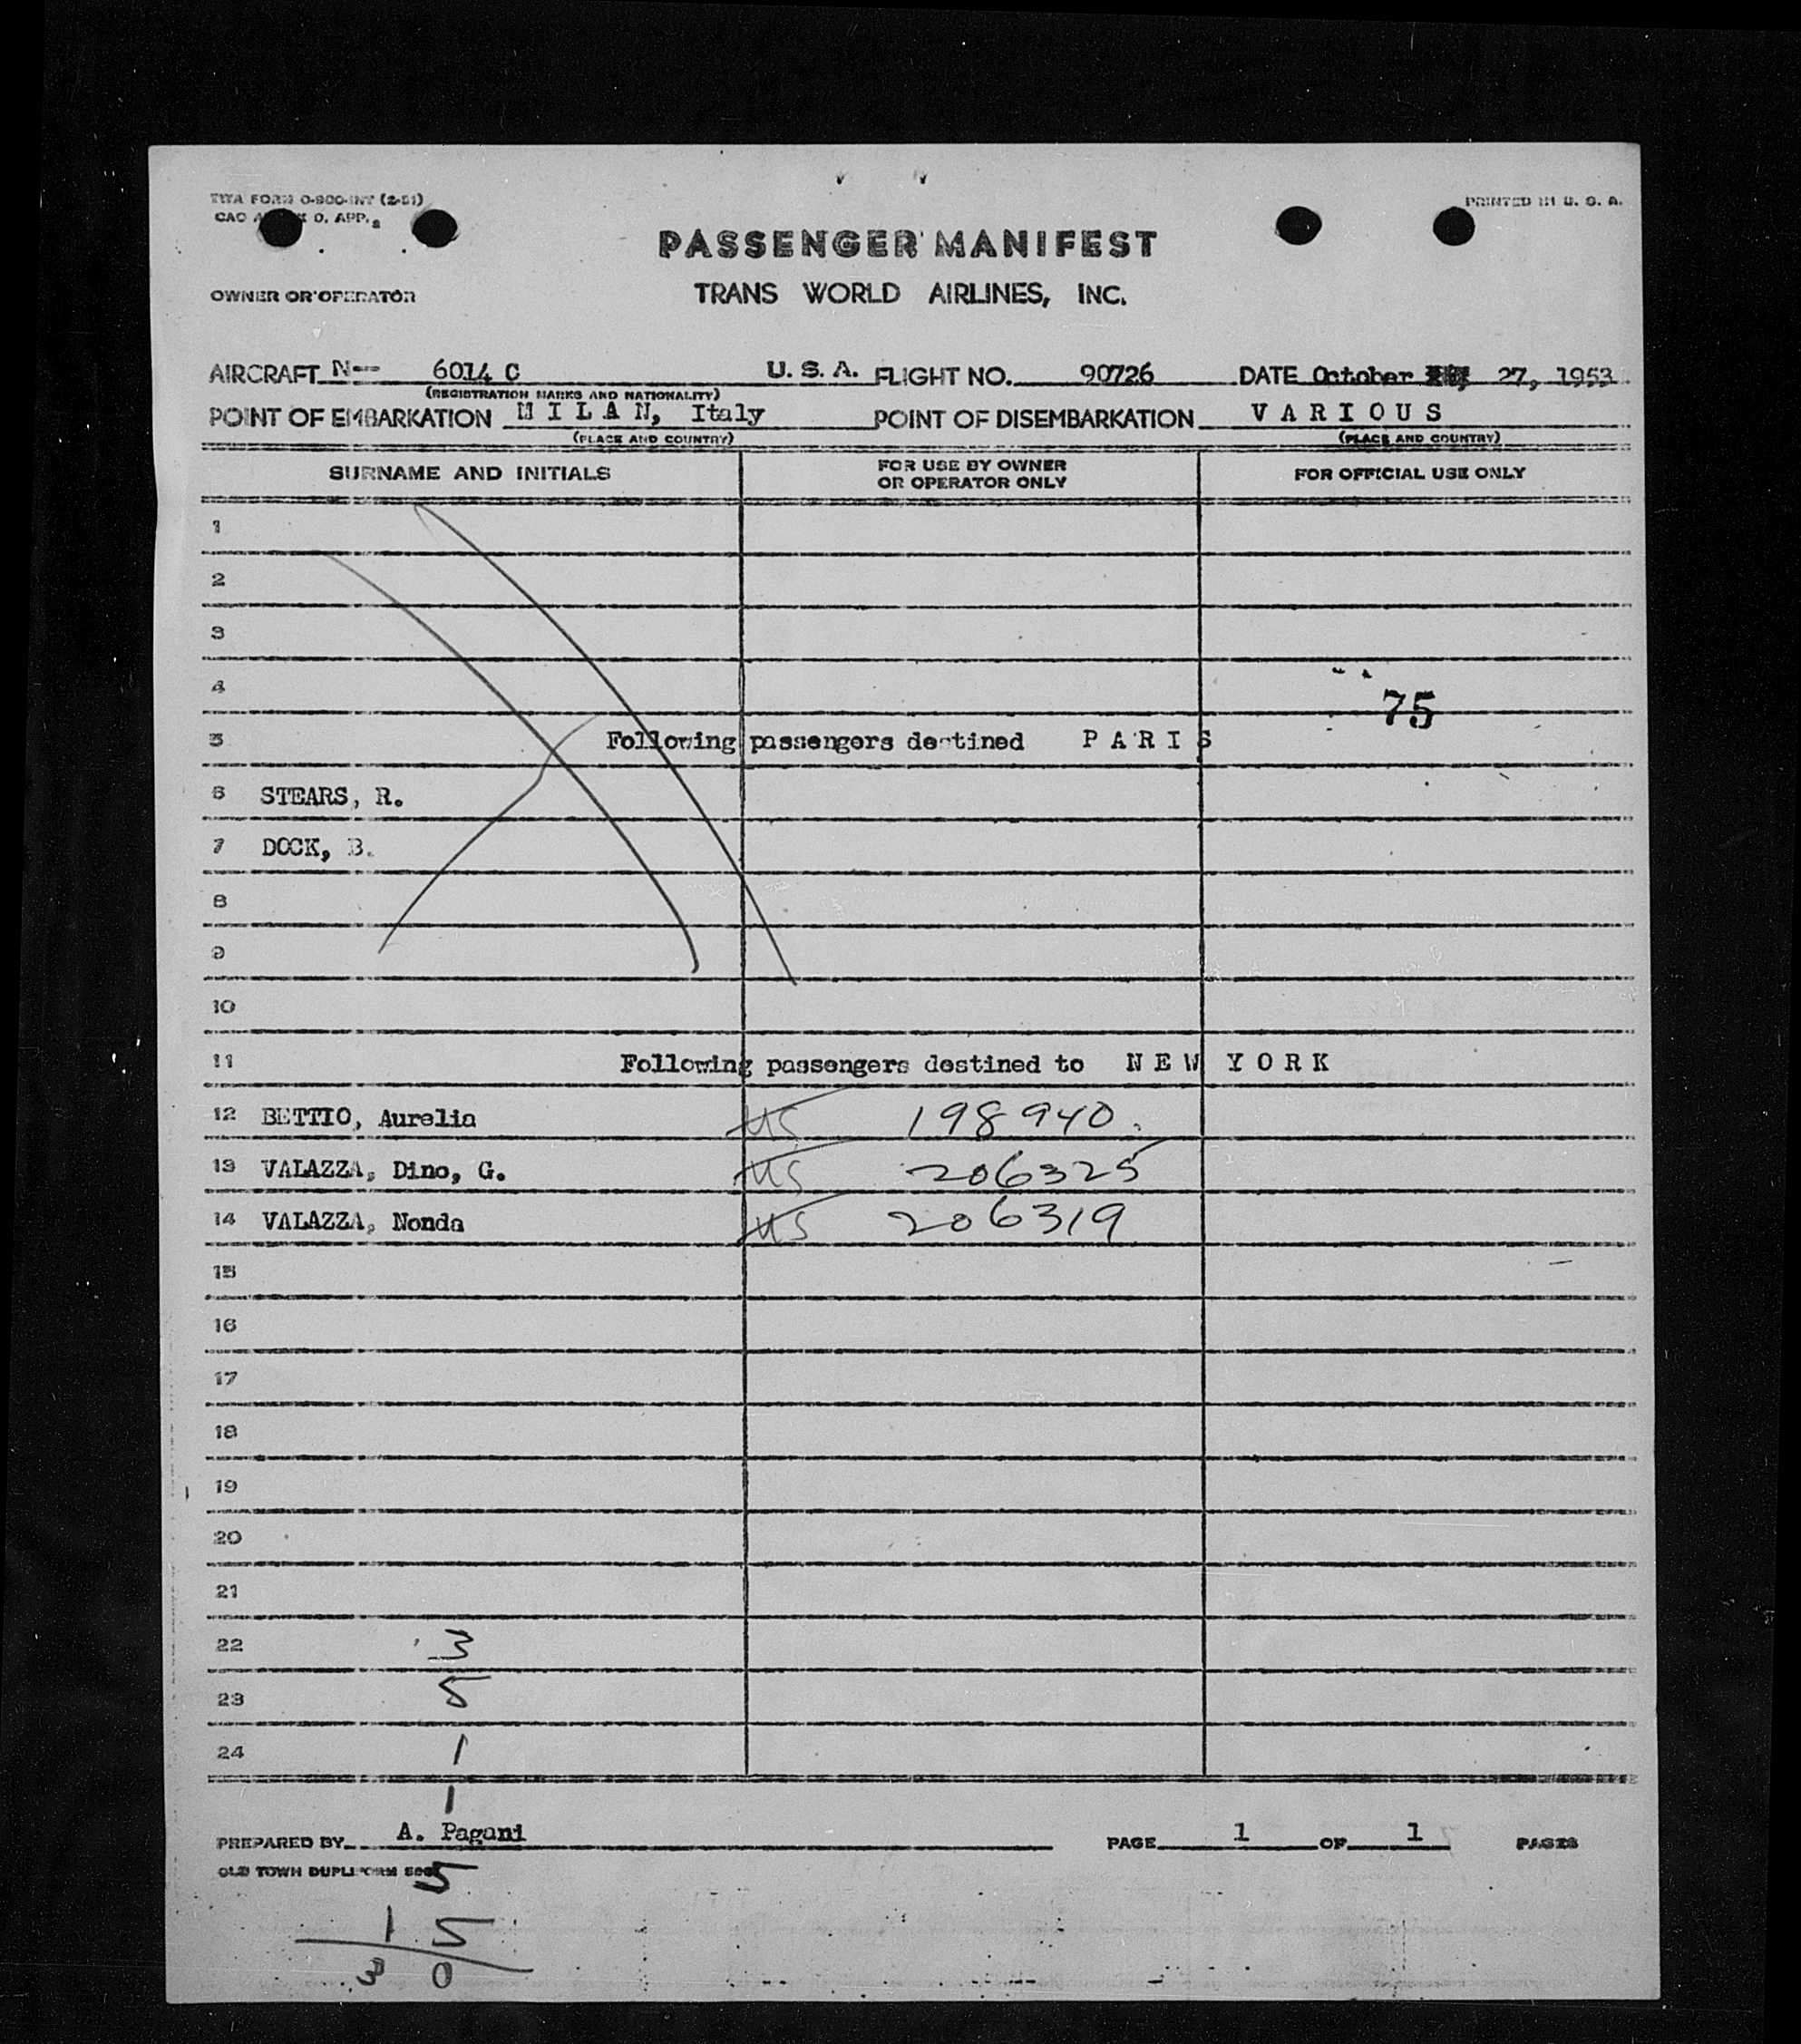 TWA FORM O-900-INT (2-51)
PRINTED IN U. S. A.
CAO O. APP.
PASSENGER MANIFEST
OWNER OR OPERATOR
TRANS WORLD AIRLINES, INC.
AIRCRAFT N-- 6014 C U. S. A. FLIGHT NO. 90726 DATE October 27, 1953
(REGISTRATION MARKS AND NATIONALITY)
POINT OF EMBARKATION M I L A N, Italy POINT OF DISEMBARKATION V A R I O U S
(PLACE AND COUNTRY) (PLACE AND COUNTRY)
SURNAME AND INITIALS FOR USE BY OWNER OR OPERATOR ONLY FOR OFFICIAL USE ONLY
1
2
3
4
75
5 Following passengers destined P A R I S
6 STEARS, R.
7 DOCK, B.
8
9
10
11 Following passengers destined to N E W Y O R K
12 BETTIO, Aurelia US 198940
13 VALAZZA, Dino, G. US 206325
14 VALAZZA, Nonda US 206319
15
16
17
18
19
20
21
22 3
23 5
24 1
1
PREPARED BY A. Pagani PAGE 1 OF 1 PAGES
OLD TOWN DUPLIFORM
5
1 5
3 0